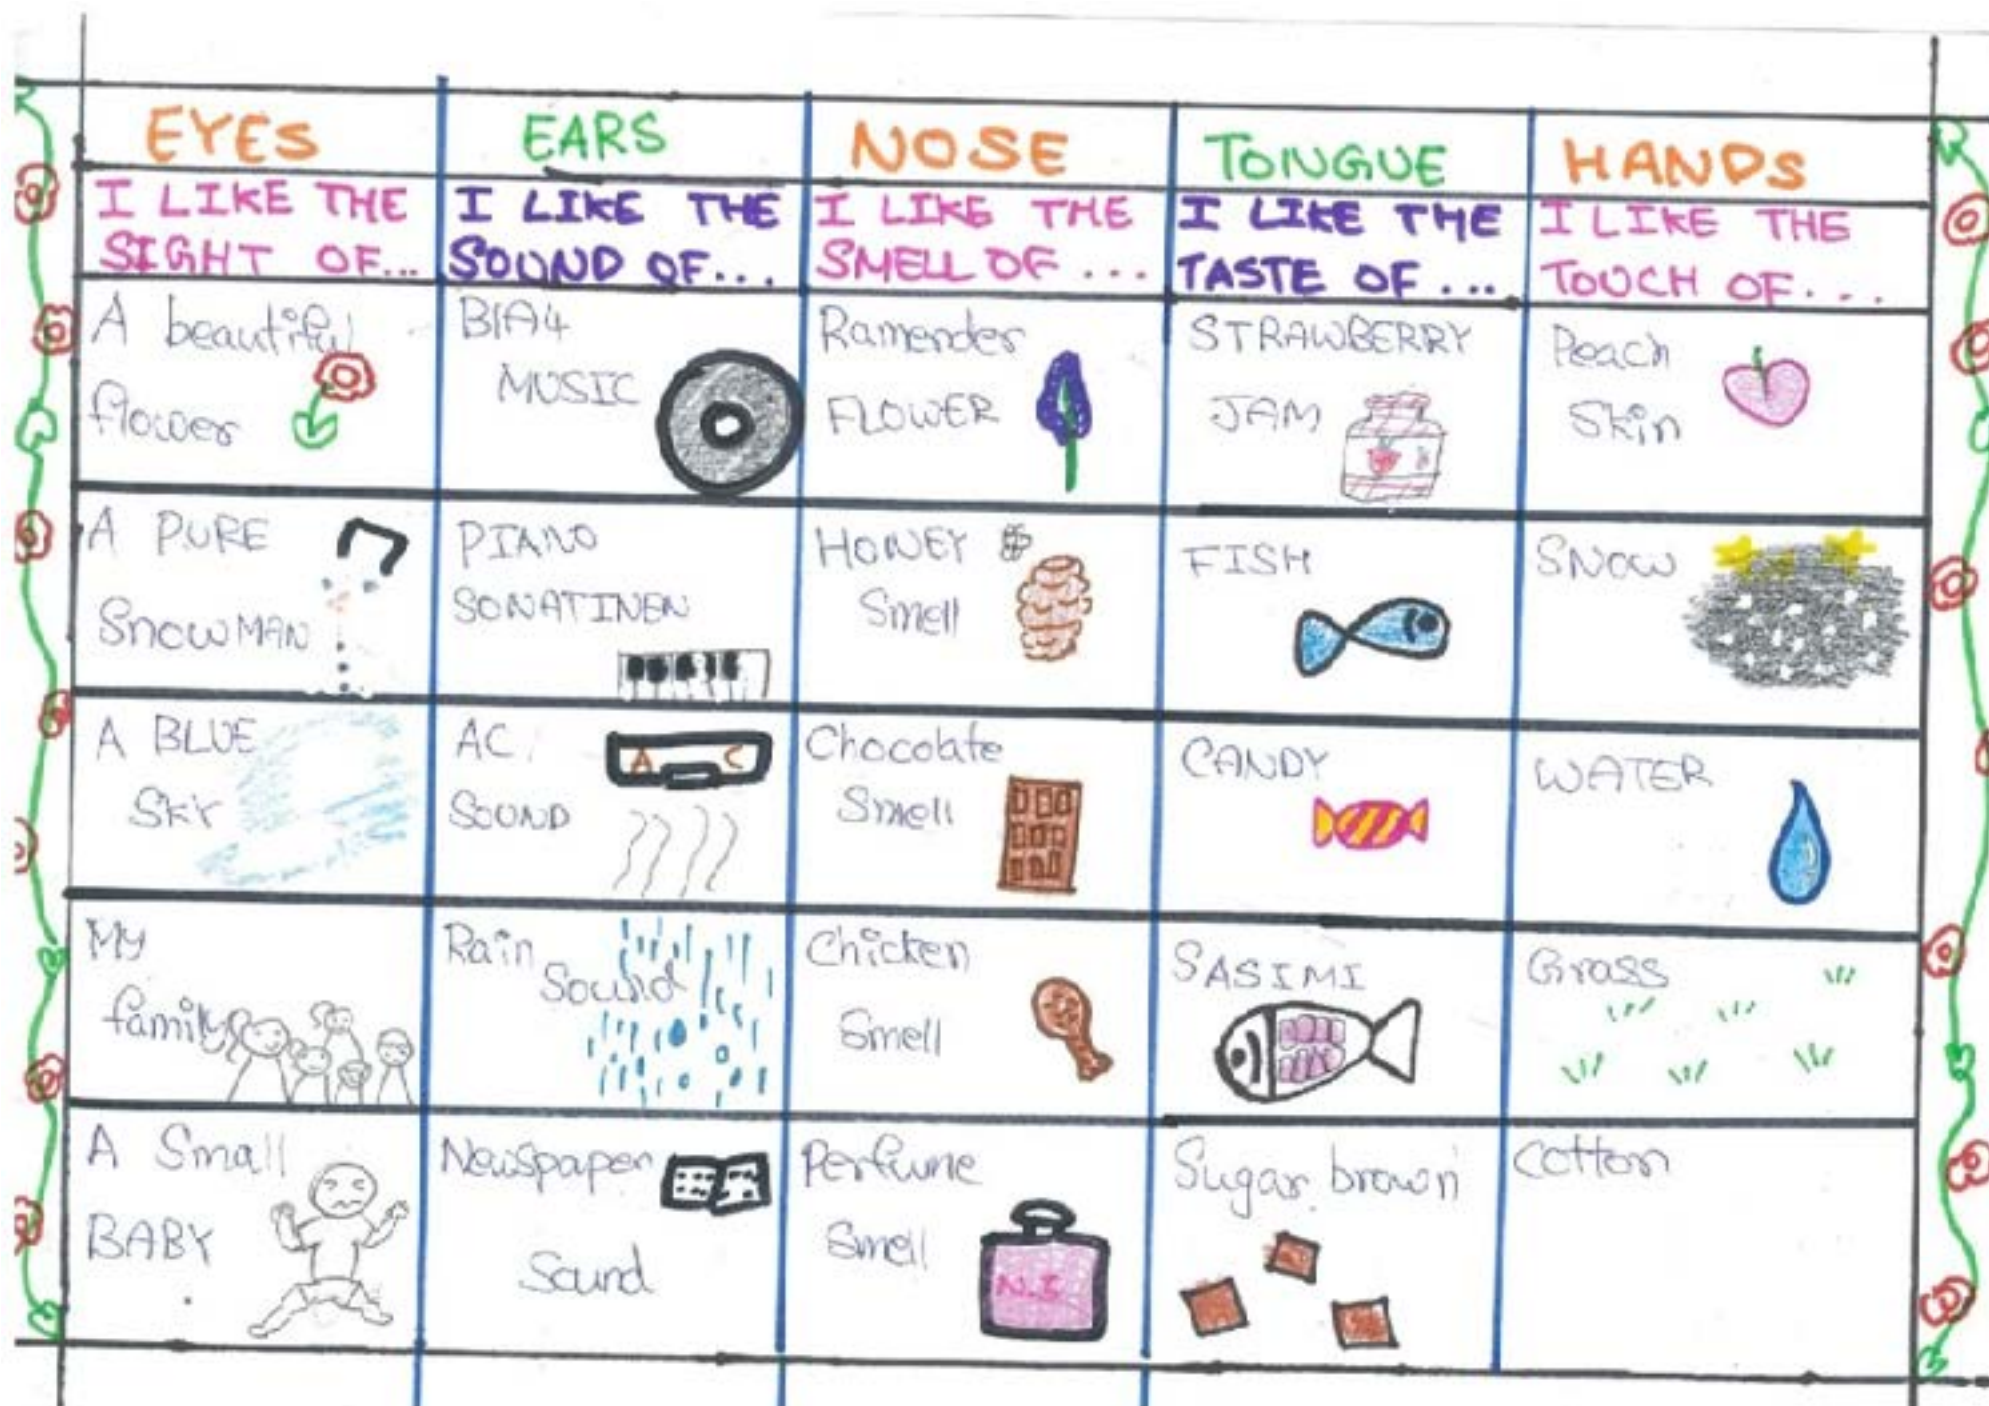 EYES EARS NOSE TONGUE HANDS
I LIKE THE SIGHT OF... I LIKE THE SOUND OF... I LIKE THE SMELL OF ... I LIKE THE TASTE OF ... I LIKE THE TOUCH OF...
A beautiful
flower
BIA4
MUSIC
Ramender
FLOWER
STRAWBERRY
JAM
Peach
Skin
A PURE
SnowMAN
PIANO
SONATINEN
HONEY
Smell
FISH
SNOW
A BLUE
SKY
AC
SOUND
A C
Chocolate
Smell
CANDY
WATER
My
family
Rain
Sound
Chicken
Smell
SASIMI
Grass
A Small
BABY
Newspaper
Sound
Perfume
Smell
N.I
Sugar brown
Cotton